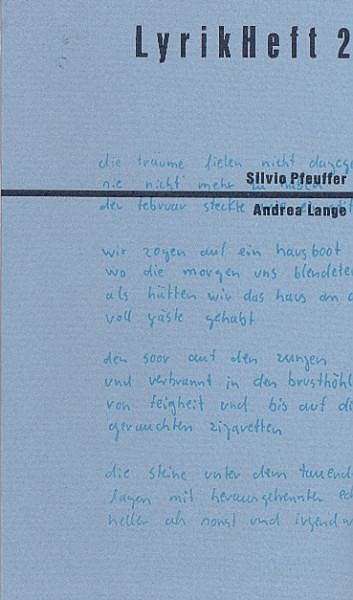 LyrikHeft 2
die träume fielen nicht dagege
Silvio Pfeuffer
nie nicht mehr zu
Andrea Lange
den februar steckte
wir zogen auf ein hausboot
wo die morgen uns blendete
als hätten wir das haus an d
voll gäste gehabt
den soor auf den zungen
und verbrannt in den brusthöhl
von feigheit und bis auf di
gerauchten zigaretten
die steine unter dem tauend
lagen mit herausgetrennter ed
heller als sonst und irgendw